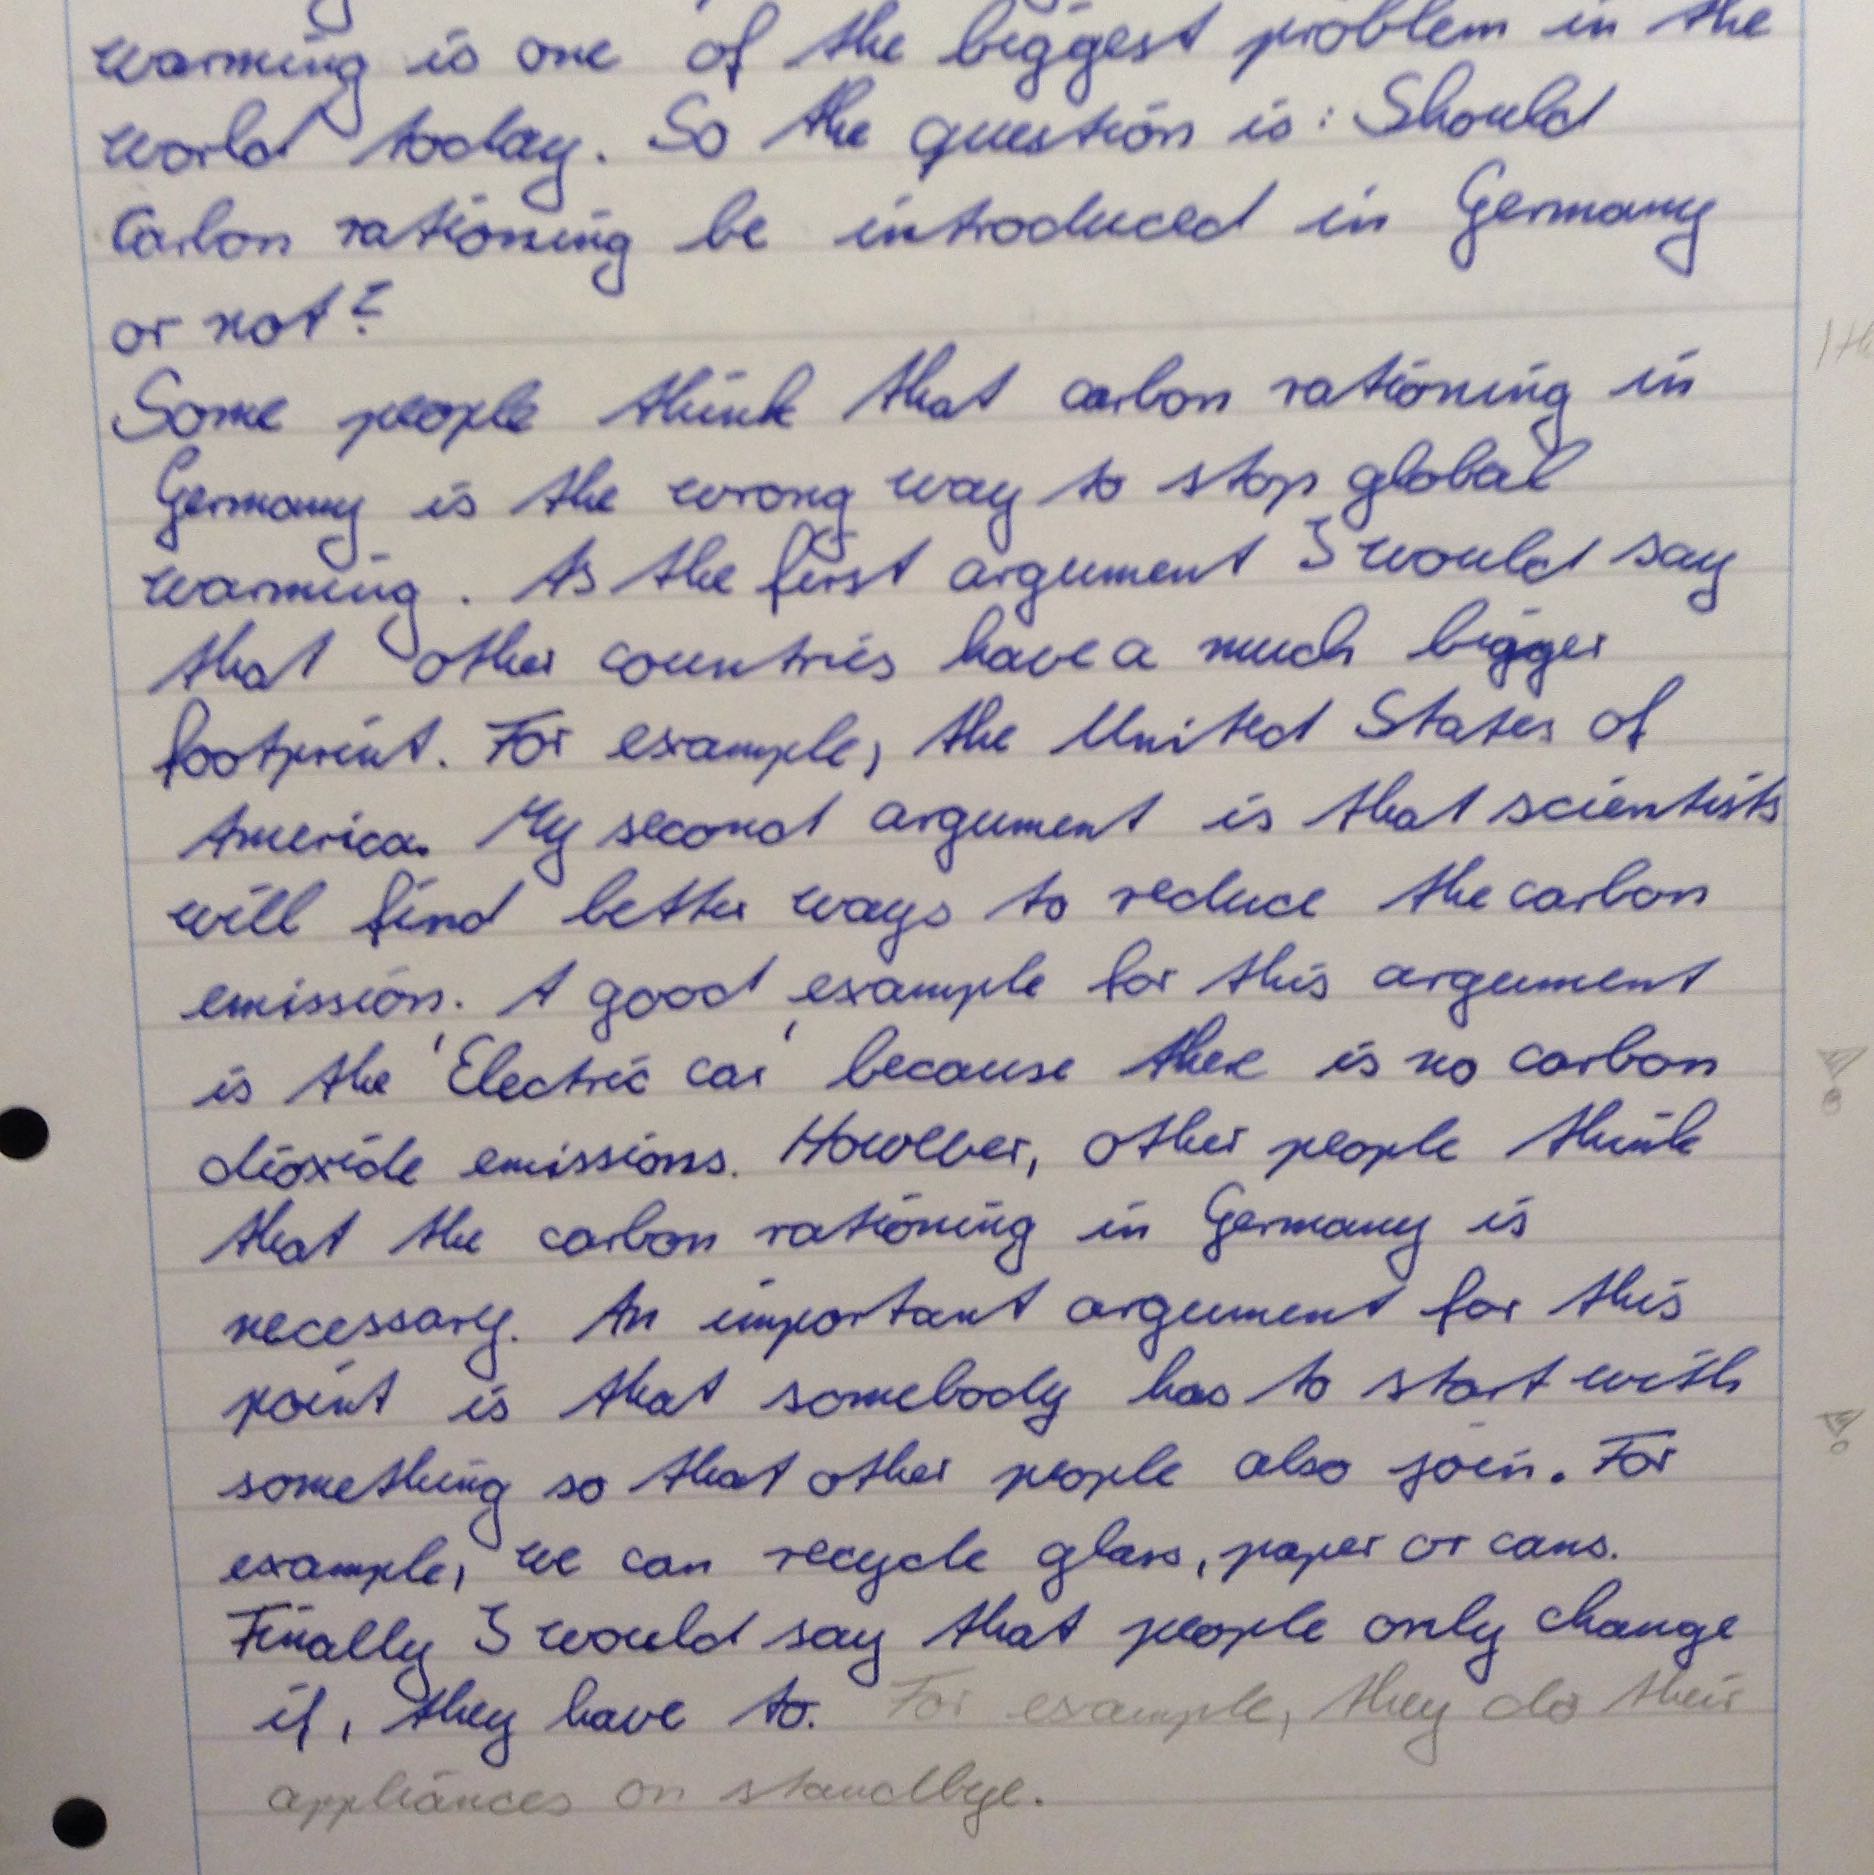 warming is one of the biggest problem in the
world today. So the question is: Should
Carbon rationing be introduced in Germany
or not?
Some people think that carbon rationing in
Germany is the wrong way to stop global
warming. As the first argument I would say
that other countries have a much bigger
footprint. For example, the United States of
America. My second argument is that scientists
will find better ways to reduce the carbon
emission. A good example for this argument
is the 'Electric car' because there is no carbon
dioxide emissions. However, other people think
that the carbon rationing in Germany is
necessary. An important argument for this
point is that somebody has to start with
something so that other people also join. For
example, we can recycle glass, paper or cans.
Finally I would say that people only change
if, they have to. For example, they do their
appliances on standbye.